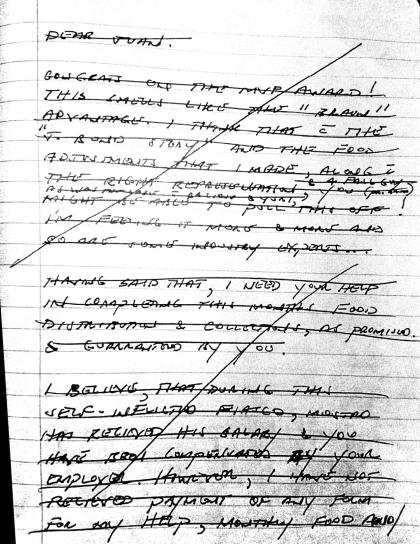 DEAR JUAN.
CONGRATS ON THE MVP AWARD!
THIS SMELLS LIKE THE "BRAUN"
ADVANTAGE. I THINK THAT C̄ THE
"J. BOND STORY" AND THE FOOD
ADJUSTMENTS THAT I MADE, ALONG C̄
THE RIGHT REPRESENTATION & A FALL GUY
AS WAS
MIGHT BE ABLE TO PULL THIS OFF!
I'M FEELING IT MORE & MORE AND
SO ARE SOME INDUSTRY EXPERTS...
HAVING SAID THAT, I NEED YOUR HELP
IN COMPLETING THIS MONTHS FOOD
DISTRIBUTION & COLLECTIONS, AS PROMISED.
& GUARANTEED BY YOU.
I BELIEVE, THAT DURING THIS
SELF-INFLICTED FIASCO,
HAS RECIEVED HIS SALARY & YOU
HAVE BEEN COMPENSATED BY YOUR
EMPLOYER. HOWEVER, I HAVE NOT
RECIEVED PAYMENT OF ANY FORM
FOR MY HELP, MONTHLY FOOD AND/